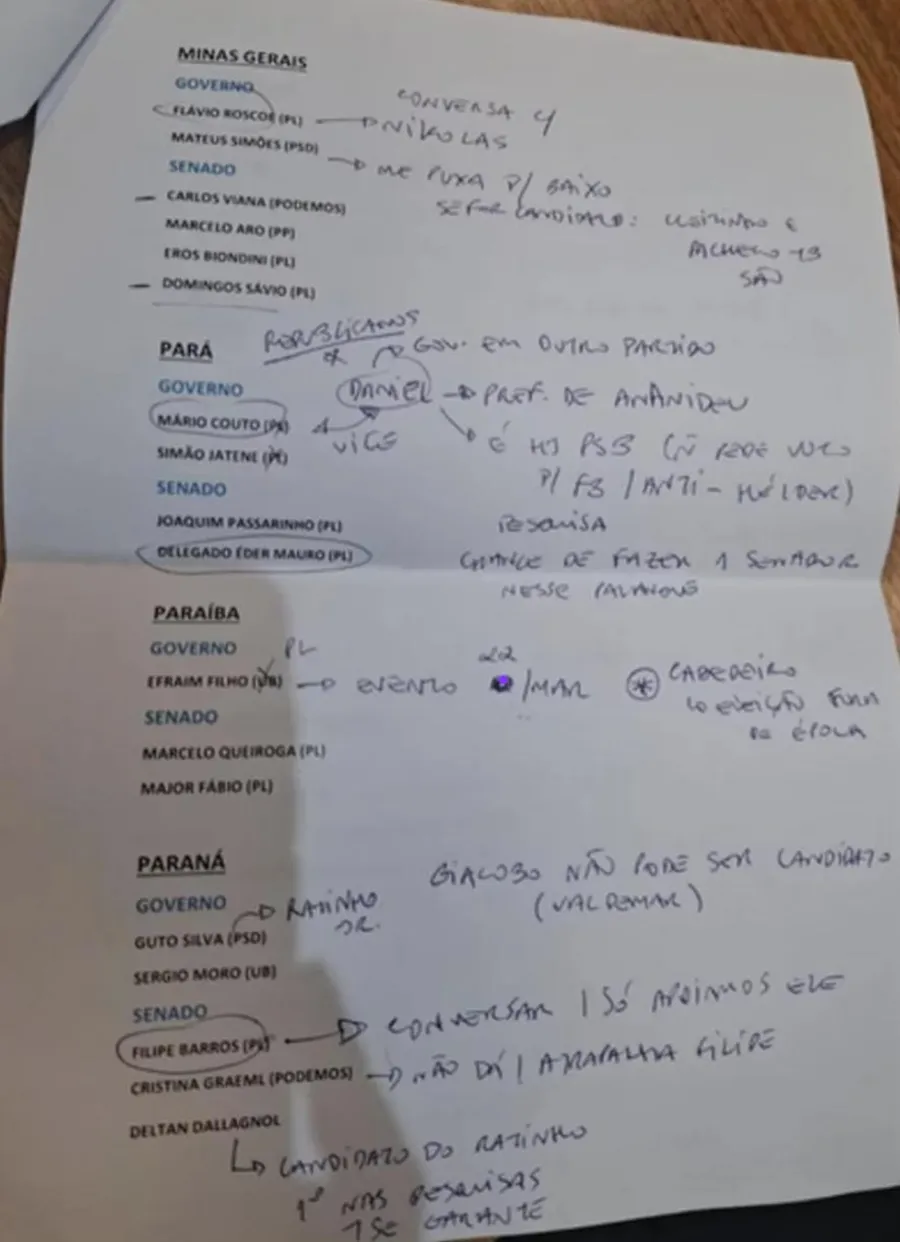 MINAS GERAIS
GOVERNO
CONVERSA
FLÁVIO ROSCOE (PL) NIKOLAS
MATEUS SIMÕES (PSD) ME PUXA P/ BAIXO
SENADO
SE FOR CANDIDATO:
CARLOS VIANA (PODEMOS)
MARCELO ARO (PP)
EROS BIONDINI (PL)
DOMINGOS SÁVIO (PL)
REPUBLICANOS
PARÁ GOV. EM OUTRO PARTIDO
GOVERNO DANIEL PREF. DE ANANIDEU
MÁRIO COUTO VICE É HJ PSB (Ñ PEDE VOTO
SIMÃO JATENE P/ FB / ANTI-HELDER)
SENADO
JOAQUIM PASSARINHO (PL) PESQUISA
DELEGADO ÉDER MAURO (PL) CHANCE DE FAZER 1 SENADOR
NESSE PALANQUE
PARAÍBA
GOVERNO PL
EFRAIM FILHO (UB) EVENTO 22/MAR * CABEDELO
ELEIÇÃO FORA
DE ÉPOCA
SENADO
MARCELO QUEIROGA (PL)
MAJOR FÁBIO (PL)
PARANÁ
GIACOBO NÃO PODE SER CANDIDATO
(VALDEMAR)
GOVERNO RATINHO
JR.
GUTO SILVA (PSD)
SERGIO MORO (UB)
SENADO
FILIPE BARROS (PL) CONVERSAR / SÓ APOIAMOS ELE
CRISTINA GRAEML (PODEMOS) NÃO DÁ / ATRAPALHA FILIPE
DELTAN DALLAGNOL
CANDIDATO DO RATINHO
1º NAS PESQUISAS
SE GARANTE